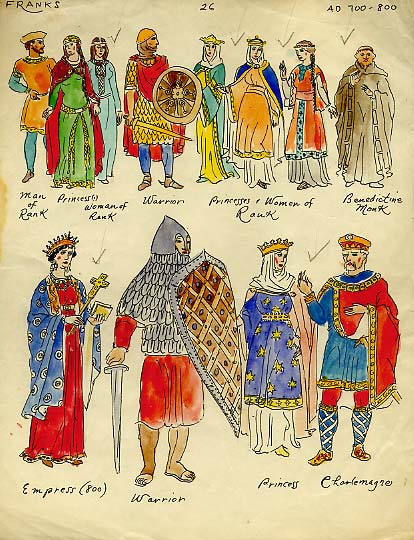 FRANKS
26
AD 700-800
Man of Rank
Princess(?)
Woman of Rank
Warrior
Princesses & Women of Rank
Benedictine Monk
Empress (800)
Warrior
Princess
Charlemagne